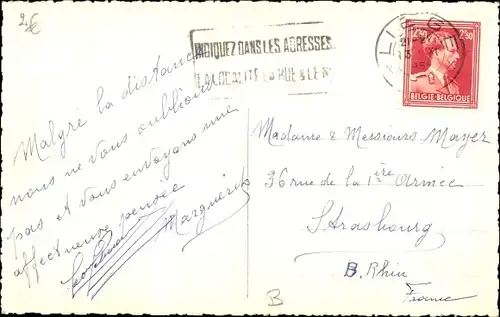 2€
INDIQUEZ DANS LES ADRESSES
LA LOCALITE LA RUE & LE N°
LIEGE
2F50 2F50
BELGIE-BELGIQUE
Malgré la distance
nous ne vous oublions
pas et vous envoyons une
affectueuse pensée
Marguerite
Madame & Messieurs Mayer
36 rue de la 1ère Armée
Strasbourg
B. Rhin
France
B